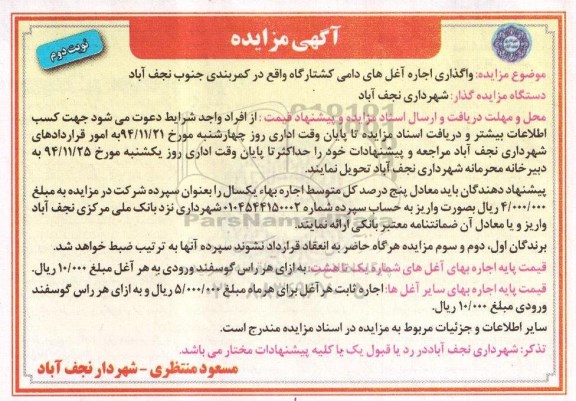 آگهی مزایده
نوبت دوم
موضوع مزایده: واگذاری اجاره آغل های دامی کشتارگاه واقع در کمربندی جنوب نجف آباد
دستگاه مزایده گذار: شهرداری نجف آباد
محل و مهلت دریافت و ارسال اسناد مزایده و پیشنهاد قیمت: از افراد واجد شرایط دعوت می شود جهت کسب
اطلاعات بیشتر و دریافت اسناد مزایده تا پایان وقت اداری روز چهارشنبه مورخ ۹۴/۱۱/۲۱به امور قراردادهای
شهرداری نجف آباد مراجعه و پیشنهادات خود را حداکثر تا پایان وقت اداری روز یکشنبه مورخ ۹۴/۱۱/۲۵ به
دبیرخانه محرمانه شهرداری نجف آباد تحویل نمایند.
پیشنهاد دهندگان باید معادل پنج درصد کل متوسط اجاره بهاء یکسال را بعنوان سپرده شرکت در مزایده به مبلغ
۴/۰۰۰/۰۰۰ ریال بصورت واریز به حساب سپرده شماره ۰۱۰۴۵۴۴۱۵۰۰۰۲ شهرداری نزد بانک ملی مرکزی نجف آباد
واریز و یا معادل آن ضمانتنامه معتبر بانکی ارائه نمایند.
برندگان اول، دوم و سوم مزایده هرگاه حاضر به انعقاد قرارداد نشوند سپرده آنها به ترتیب ضبط خواهد شد.
قیمت پایه اجاره بهای آغل های شماره یک تا هشت: به ازای هر راس گوسفند ورودی به هر آغل مبلغ ۱۰/۰۰۰ ریال.
قیمت پایه اجاره بهای سایر آغل ها: اجاره ثابت هر آغل برای هر ماه مبلغ ۵/۰۰۰/۰۰۰ ریال و به ازای هر راس گوسفند
ورودی مبلغ ۱۰/۰۰۰ ریال.
سایر اطلاعات و جزئیات مربوط به مزایده در اسناد مزایده مندرج است.
تذکر: شهرداری نجف آباددر رد یا قبول یک یا کلیه پیشنهادات مختار می باشد.
مسعود منتظری - شهردار نجف آباد
ParsNamadData